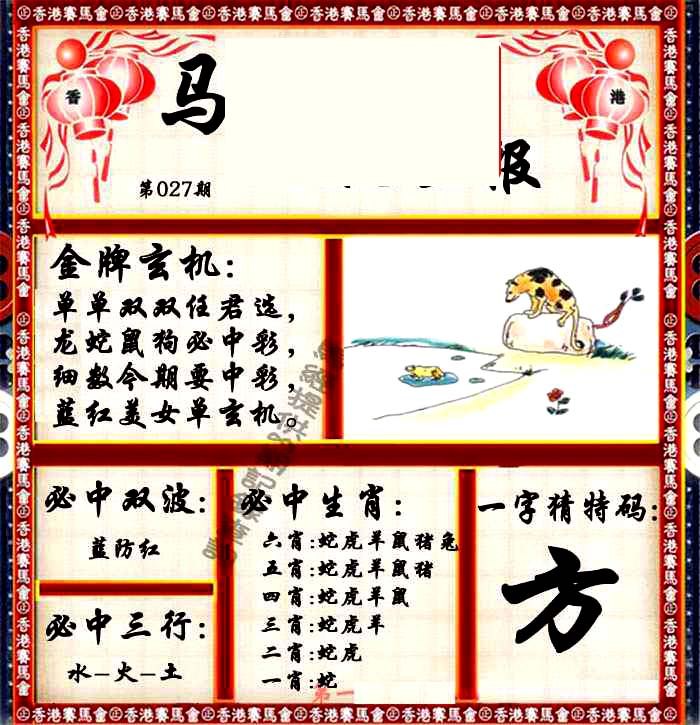 香港賽馬會㊣香港賽馬會㊣香港賽馬會㊣香港賽馬會㊣香港賽馬會㊣香港賽馬會
香
港
马
报
第027期
金牌玄机:
单单双双任君选,
龙蛇鼠狗必中彩,
细数今期要中彩,
蓝红美女单玄机。
必中双波:
蓝防红
必中三行:
水-火-土
必中生肖:
六肖:蛇虎羊鼠猪兔
五肖:蛇虎羊鼠猪
四肖:蛇虎羊鼠
三肖:蛇虎羊
二肖:蛇虎
一肖:蛇
第一
一字猜特码:
方